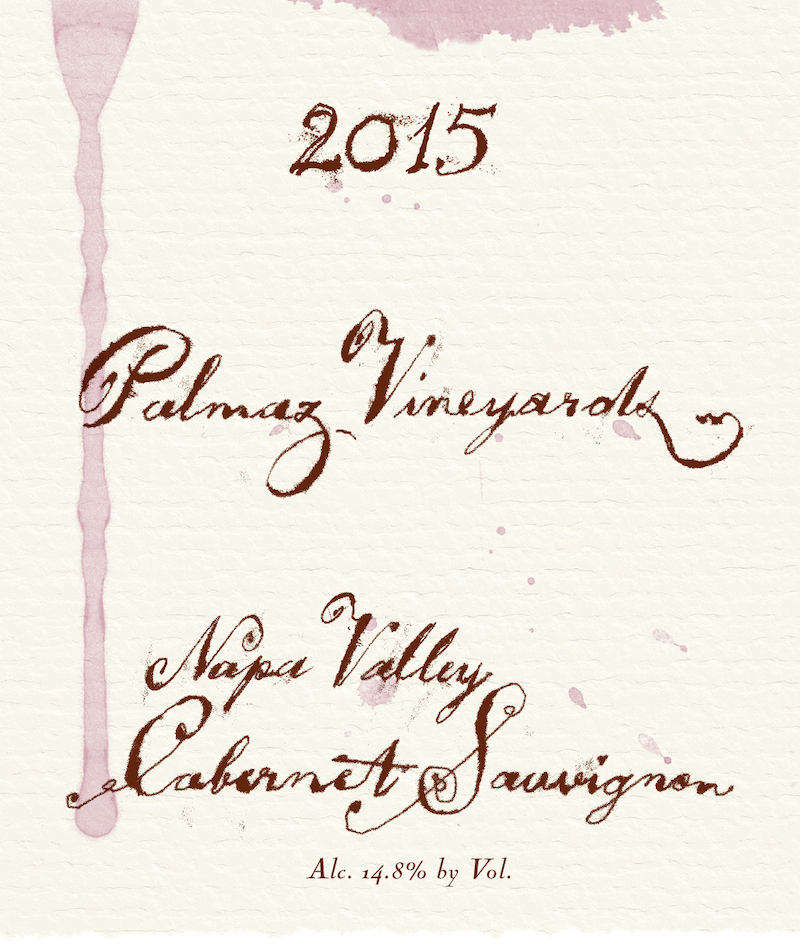 2015
Palmaz Vineyards
Napa Valley
Cabernet Sauvignon
Alc. 14.8% by Vol.